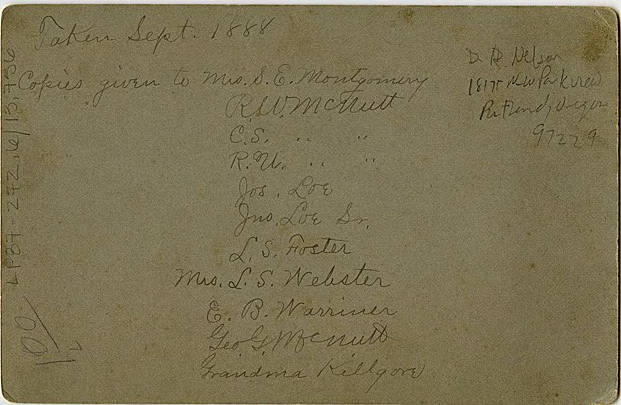 Taken Sept. 1888
Copies given to Mrs. S. E. Montgomery
R. W. McNutt
C. S. " "
R. U. " "
Jos. Loe
Jno. Loe Sr.
L. S. Foster
Mrs. L. S. Webster
E. B. Warriner
Geo G. McNutt
Grandma Killgore
D. R. Nelson
NW Parkview
Portland, Oregon
97229
100